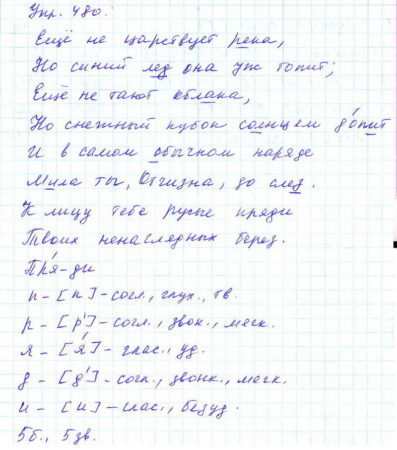 Упр. 480.
Ещё не царствует река,
Но синий лед она уж топит;
Ещё не тают облака,
Но снежный кубок солнцем до́пит
И в самом обычном наряде
Мила ты, Отчизна, до слез.
К лицу тебе русые пряди
Твоих ненаглядных берез.
Пря́-ди
п - [п] - согл., глух., тв.
р - [р'] - согл., звон., мягк.
я - [я́] - глас., уд.
д - [д'] - согл., звонк., мягк.
и - [и] - глас., безуд.
5б., 5зв.